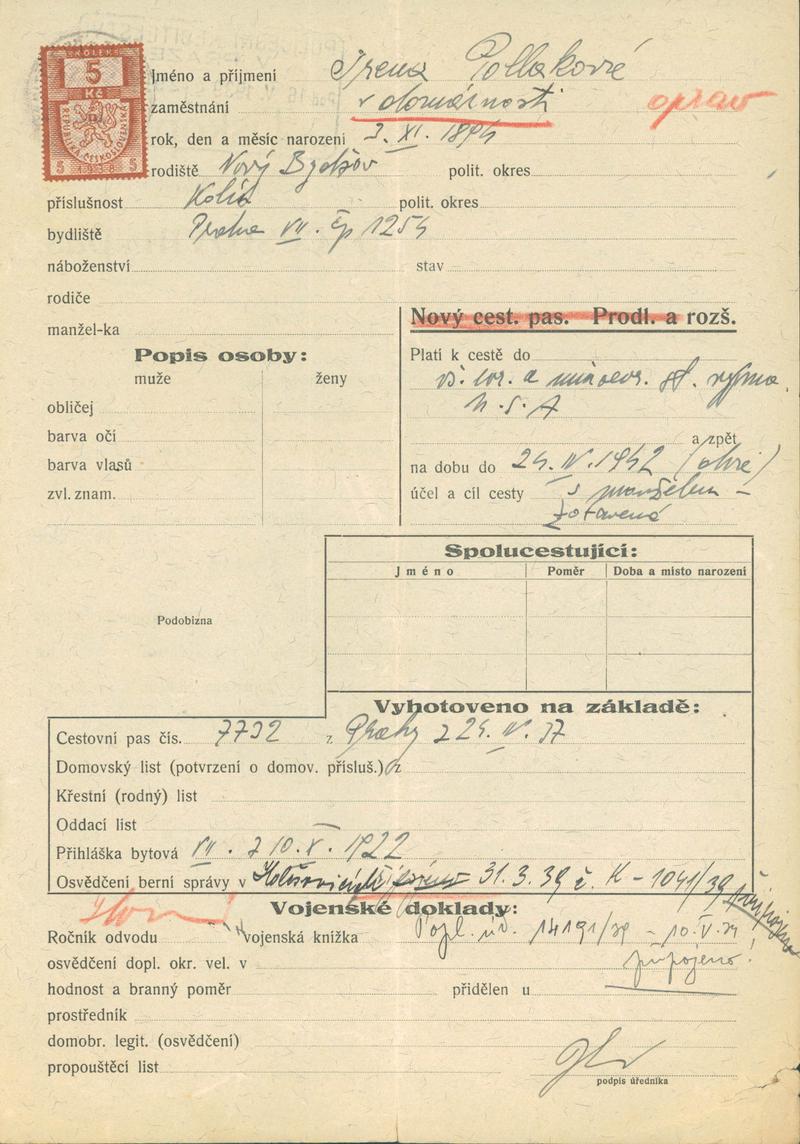 KOLEK
5
Kč
REPUBLIKA ČESKOSLOVENSKÁ
5 1938 5
Jméno a příjmení Irena Pollaková
zaměstnání v domácnosti oprav
rok, den a měsíc narození 3. XI. 1894
rodiště Nový Bydžov polit. okres
příslušnost Kolín polit. okres
bydliště Praha VII. čp 1254
náboženství stav
rodiče
manžel-ka
Nový cest. pas. Prodl. a rozš.
Popis osoby:
muže ženy
obličej
barva očí
barva vlasů
zvl. znam.
Platí k cestě do
vš. evr. a mimoevr. st. vyjma
U.S.A
a zpět
na dobu do 24. IV. 1942
účel a cíl cesty s manželem -
zotavená
Spolucestující:
Jméno Poměr Doba a místo narození
Podobizna
Vyhotoveno na základě:
Cestovní pas čís. 7732 z Prahy z 24. IV. 37
Domovský list (potvrzení o domov. přísluš.) z
Křestní (rodný) list
Oddací list
Přihláška bytová VII. z 10. X. 1922
Osvědčení berní správy v 31.3.39 č. K - 1041/39 připojeno
Vojenské doklady:
Ročník odvodu vojenská knížka Popl. úř. 14191/39 - 10.V.39
osvědčení dopl. okr. vel. v připojeno!
hodnost a branný poměr přidělen u
prostředník
domobr. legit. (osvědčení)
propouštěcí list
podpis úředníka